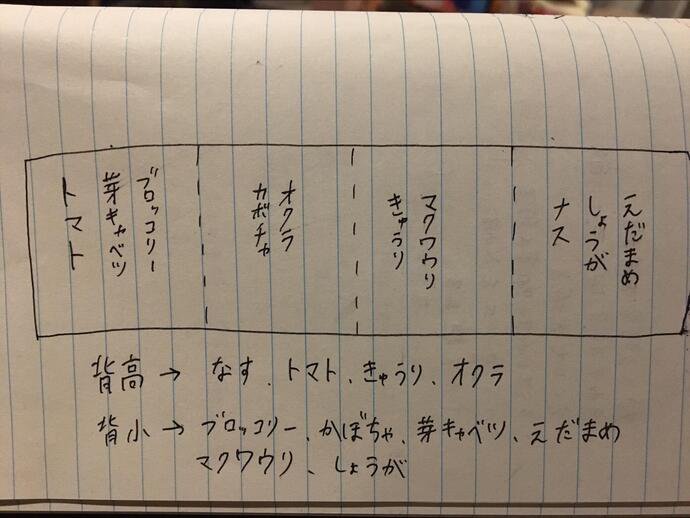 えだまめ
しょうが
ナス
マクワウリ
きゅうり
オクラ
カボチャ
ブロッコリー
芽キャベツ
トマト
背高 → なす、トマト、きゅうり、オクラ
背小 → ブロッコリー、かぼちゃ、芽キャベツ、えだまめ
マクワウリ、しょうが